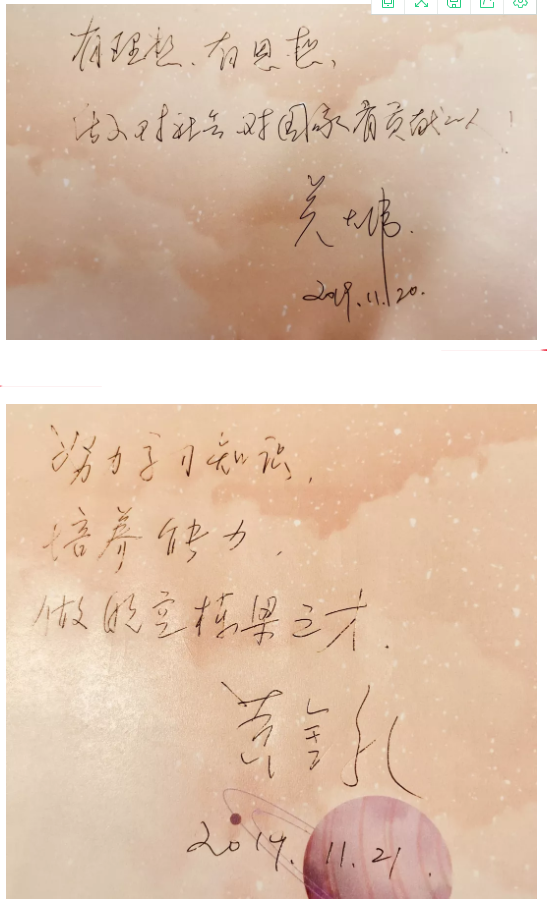 有理想、有思想、
对社会对国家有贡献的人!
2019.11.20.
努力学习知识,
培养能力,
做航空栋梁之才.
2019.11.21.